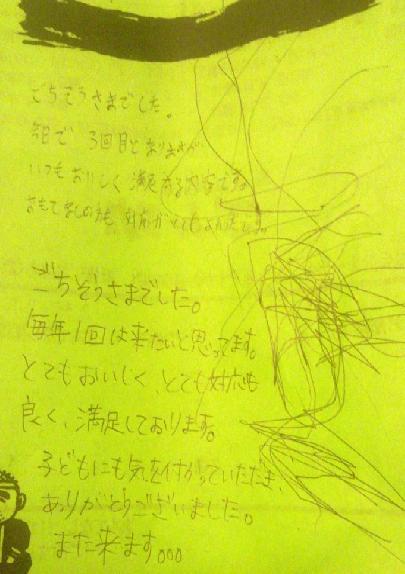 ごちそうさまでした。
今日で 3回目となりますが
いつもおいしく 満足する内容です。
おもてなしの方も 対応がとてもよかったです。
ごちそうさまでした。
毎年1回は来たいと思ってます。
とてもおいしく とても対応も
良く、満足しております。
子どもにも気を付かっていただき、
ありがとうございました。
また来ます。。。